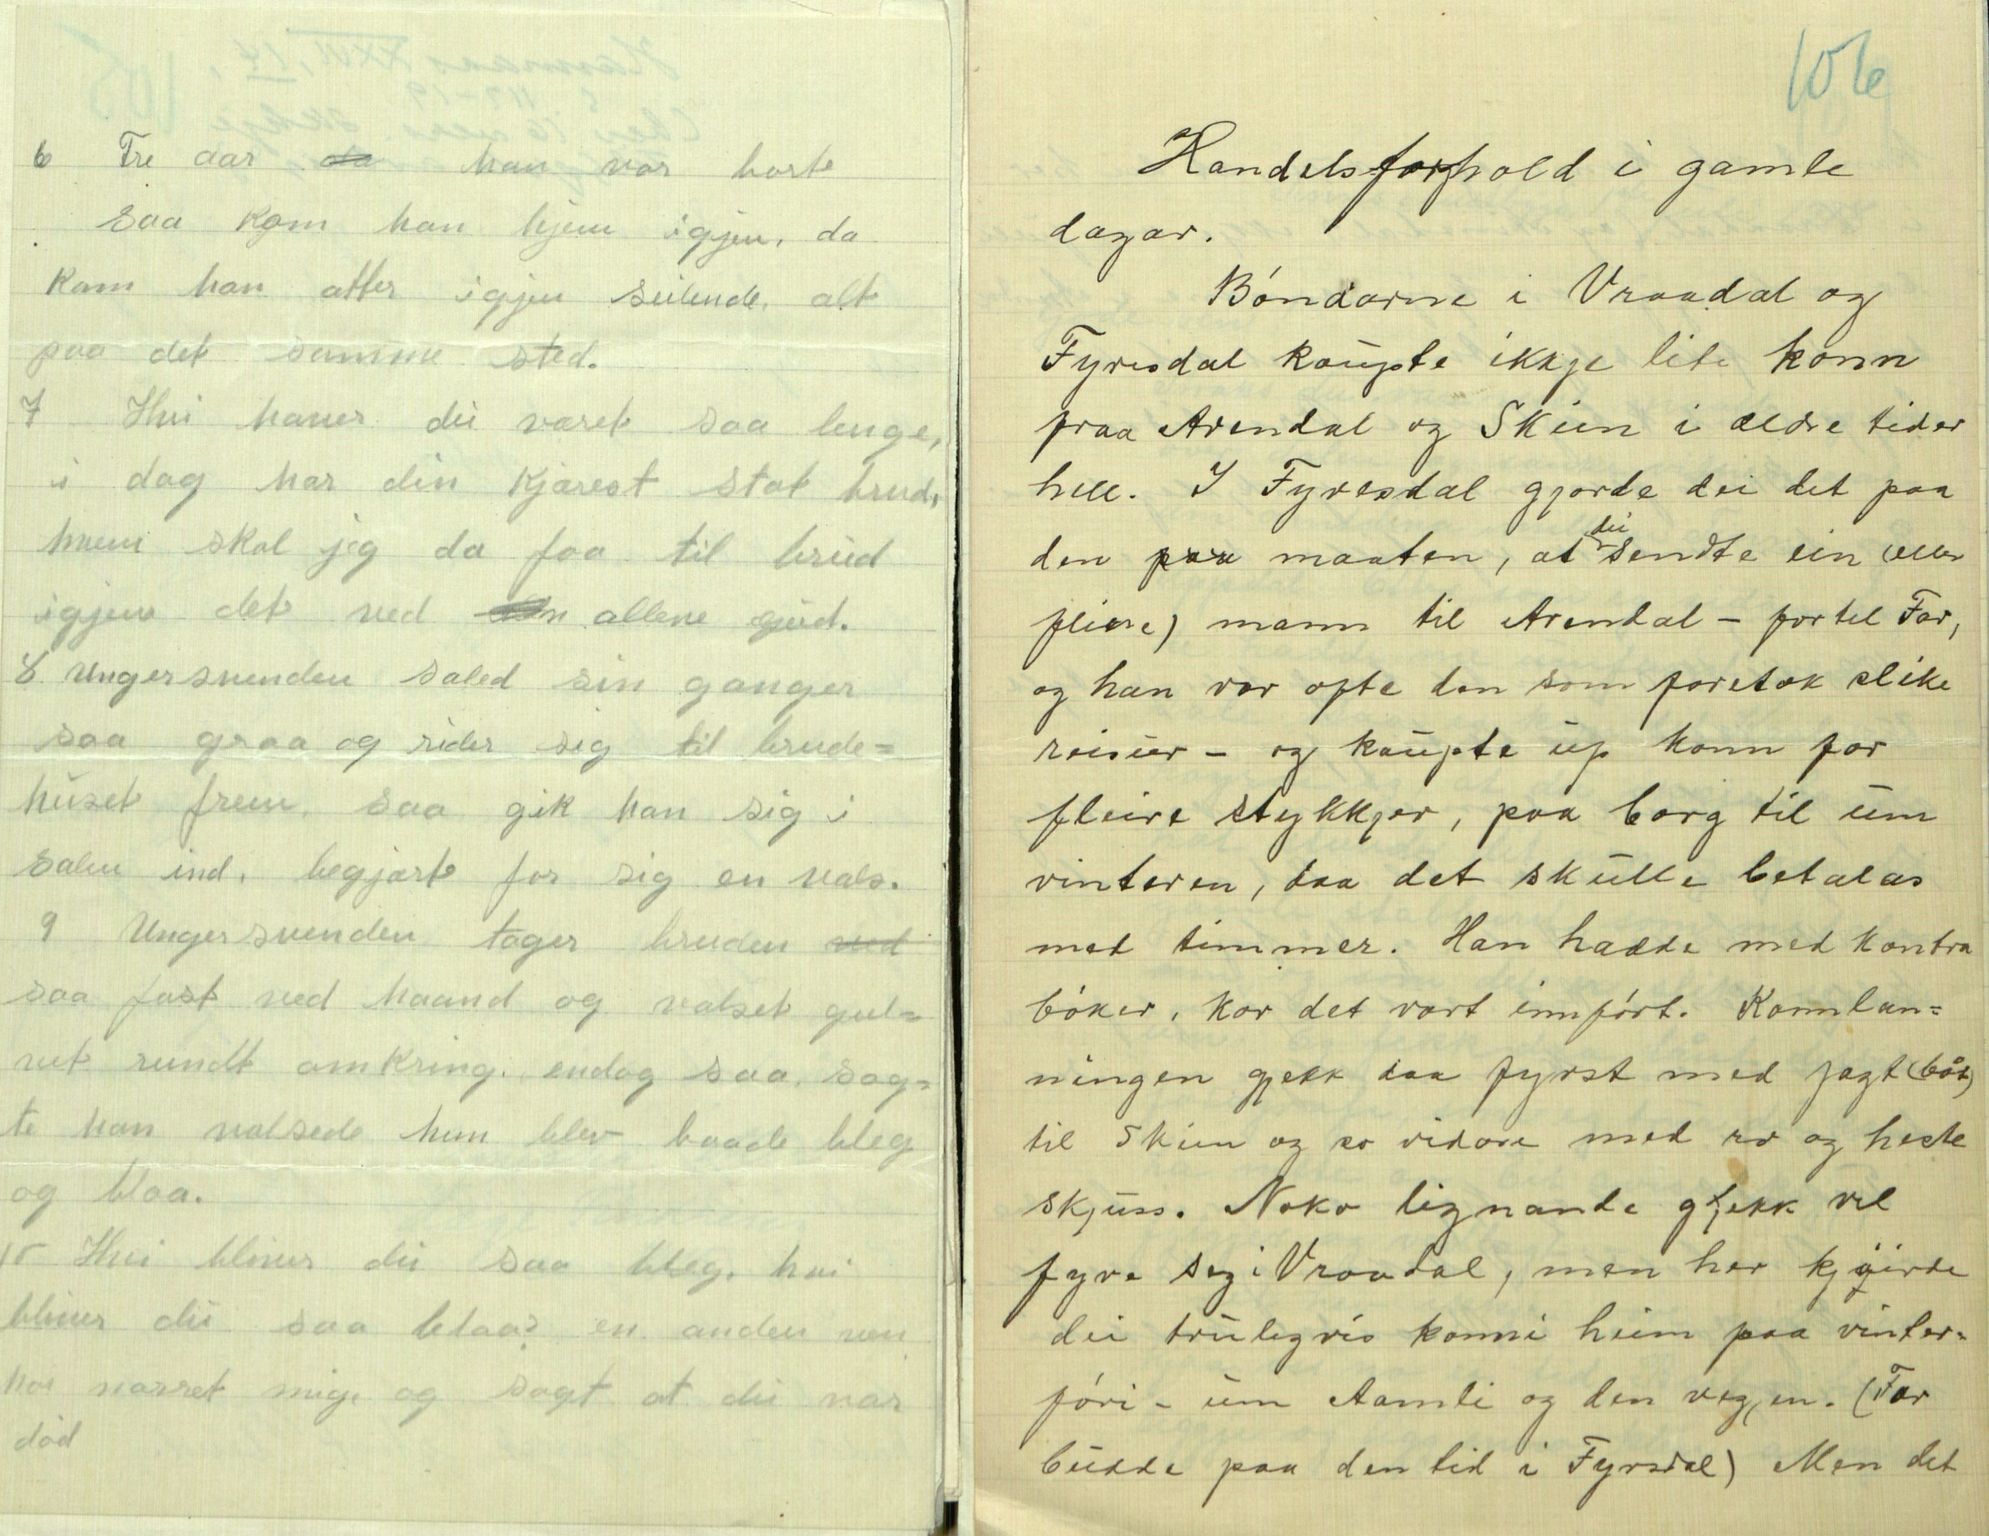 6 Tre aar da han var borte
saa kom han hjem igjen, da
kam han atter igjen seilende, alt
paa det samme sted.
7 Hvi haver du varet saa lenge,
i dag har din kjarest stat brud,
hvem skal jeg da faa til brud
igjen det ved allene gud.
8 Ungersvenden saled sin ganger
saa graa og rider sig til brude=
huset frem, saa gik han sig i
salen ind, begjarte for sig en vals.
9 Ungersvenden tager bruden ved
saa fast ved haand og valset gul=
vet rundt omkring, endog saa, sag=
te han valsede hun blev baade bleg
og blaa.
10 Hvi bliver du saa bleg, hvi
bliver du saa blaa? en anden ven
har narret mig, og sagt at du var
død
106
Handelsforhold i gamle
dagar.
Bóndarne i Vraadal og
Fyresdal kaupte ikkje lite konn
fraa Arendal og Skien i eldre tider
hell. I Fyresdal gjorde dei det paa
den paa maaten, at dei sendte ein (eller
fleire) mann til Arendal – fortel Far,
og han var ofte den som foretok slike
reisur – og kaupte up konn for
fleire stykkjer, paa borg til um
vinteren, daa det skulle betalas
med timmer. Han hadde med kontra
bóker, kor det vart innfórt. Konnlan=
ningen gjekk daa fyrst med jagt (båt)
til Skien og so vidare med ro og heste
skjuss. Noko lignande gjekk vel
fyre seg i Vraadal, men her kjóirde
dei trulegvis konni heim paa vinter=
fóri – um Aamli og den vegjen. (Far
budde paa den tid i Fyrsdal) Men det